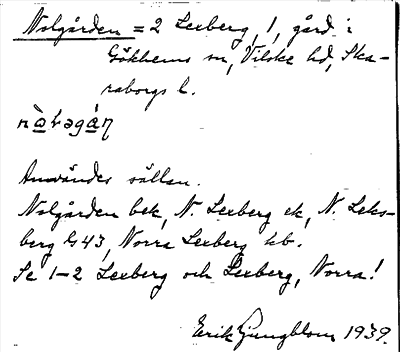 Nolgården = 2 Lexberg, 1, gård i
Gökhems sn, Vilske hd, Ska-
raborgs l.
Användes sällan.
Nolgården bek, N. Lexberg ek, N. Leks-
berg G43, Norra Lexberg hb.
Se 1-2 Lexberg och Lexberg, Norra!
Erik Ljungblom 1939.